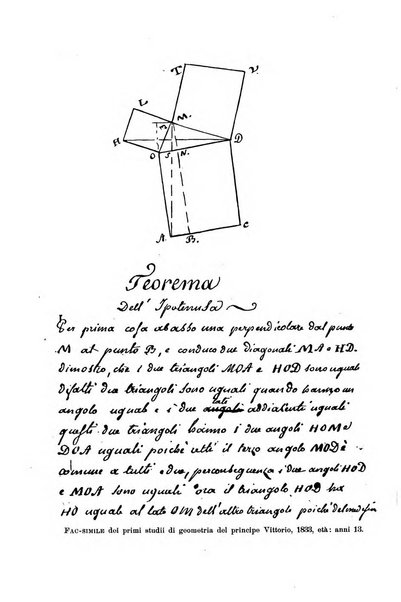 T
V
L
M.
3
H
D
O
S
N.
A
B.
C
Teorema
Dell' Ipotenusa
Per prima cosa abasso una perpendicolare dal punto
M al punto B, e conduco due diagonali MA e HD.
dimostro, che i due triangoli MOA e HOD sono uguali
difatti due triangoli sono uguali quando hanno un
lati
angolo uguale e i due angoli addiacenti uguali
questi due triangoli hanno i due angoli HOM e
DOA uguali poichè retti il terzo angolo MOD è
comune a tutti e due, per conseguenza i due angoli HOD
e MOA sono uguali ora il triangolo HOD ha
HO uguale al lato OM dell'altro triangolo poichè
FAC-SIMILE dei primi studii di geometria del principe Vittorio, 1833, età: anni 13.